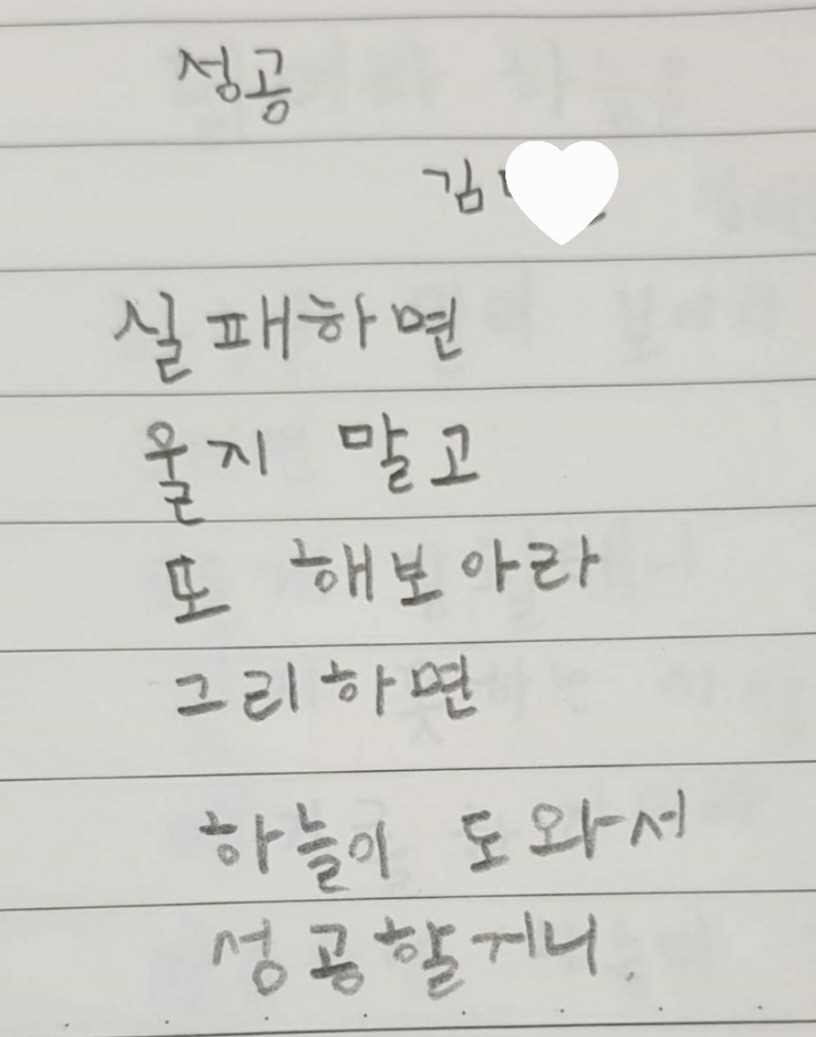 성공
김
실패하면
울지 말고
또 해보아라
그리하면
하늘이 도와서
성공할거니.